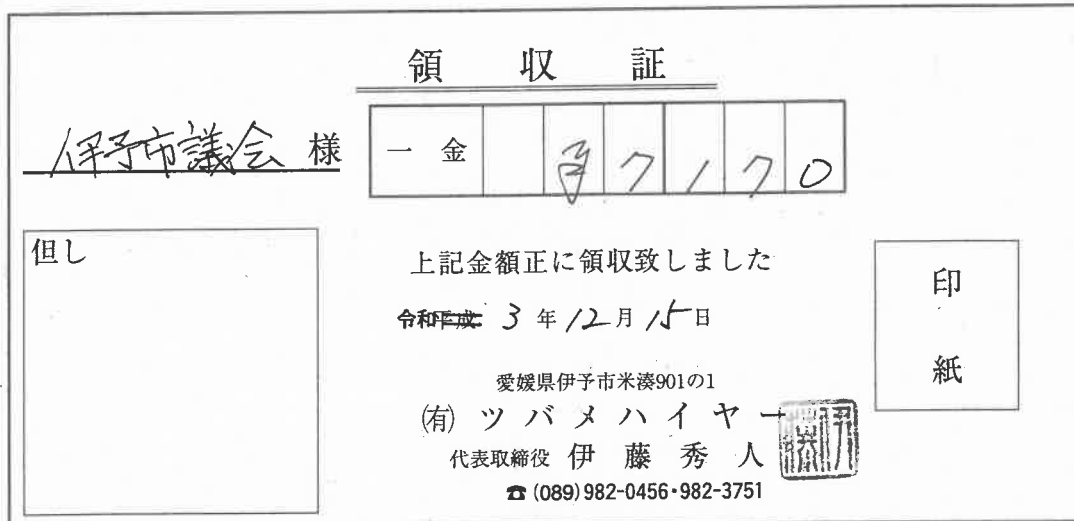 領収証
伊予市議会 様
一金 7170
但し
上記金額正に領収致しました
令和平成 3年12月15日
印紙
愛媛県伊予市米湊901の1
(有)ツバメハイヤー
代表取締役 伊藤秀人
☎(089)982-0456・982-3751